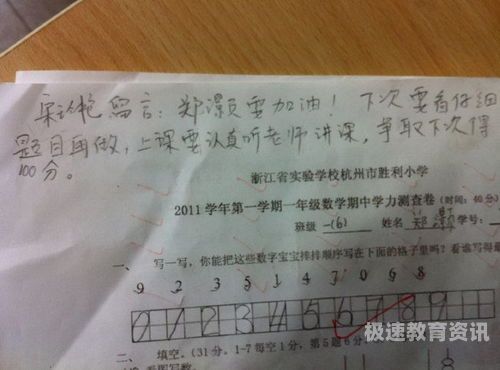 留言：郑灏颢要加油！下次要看仔细
题目再做，上课要认真听老师讲课，争取下次得
100分。
浙江省实验学校杭州市胜利小学
2011学年第一学期一年级数学期中学力测查卷（时间：40分
班级 一(6) 姓名 郑灏颢 学号：
一、 写一写，你能把这些数字宝宝排排顺序写在下面的格子里吗？看谁写得最
9 2 3 5 1 4 7 0 6 8
0 1 2 3 4 5 6 7 8 9
二、 填空。（31分。1-7每空1分，第5题6分
看图写数
极速教育资讯